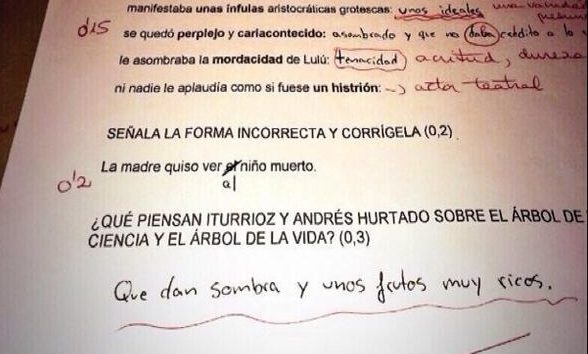 manifestaba unas ínfulas aristocráticas grotescas: unos ideales una vanidad
0'15 se quedó perplejo y cariacontecido: asombrado y que no daba crédito a lo
le asombraba la mordacidad de Lulú: tenacidad acritud, dureza
ni nadie le aplaudía como si fuese un histrión: actor teatral
SEÑALA LA FORMA INCORRECTA Y CORRÍGELA (0,2)
La madre quiso ver el niño muerto.
0'2 al
¿QUÉ PIENSAN ITURRIOZ Y ANDRÉS HURTADO SOBRE EL ÁRBOL DE
CIENCIA Y EL ÁRBOL DE LA VIDA? (0,3)
Que dan sombra y unos frutos muy ricos.